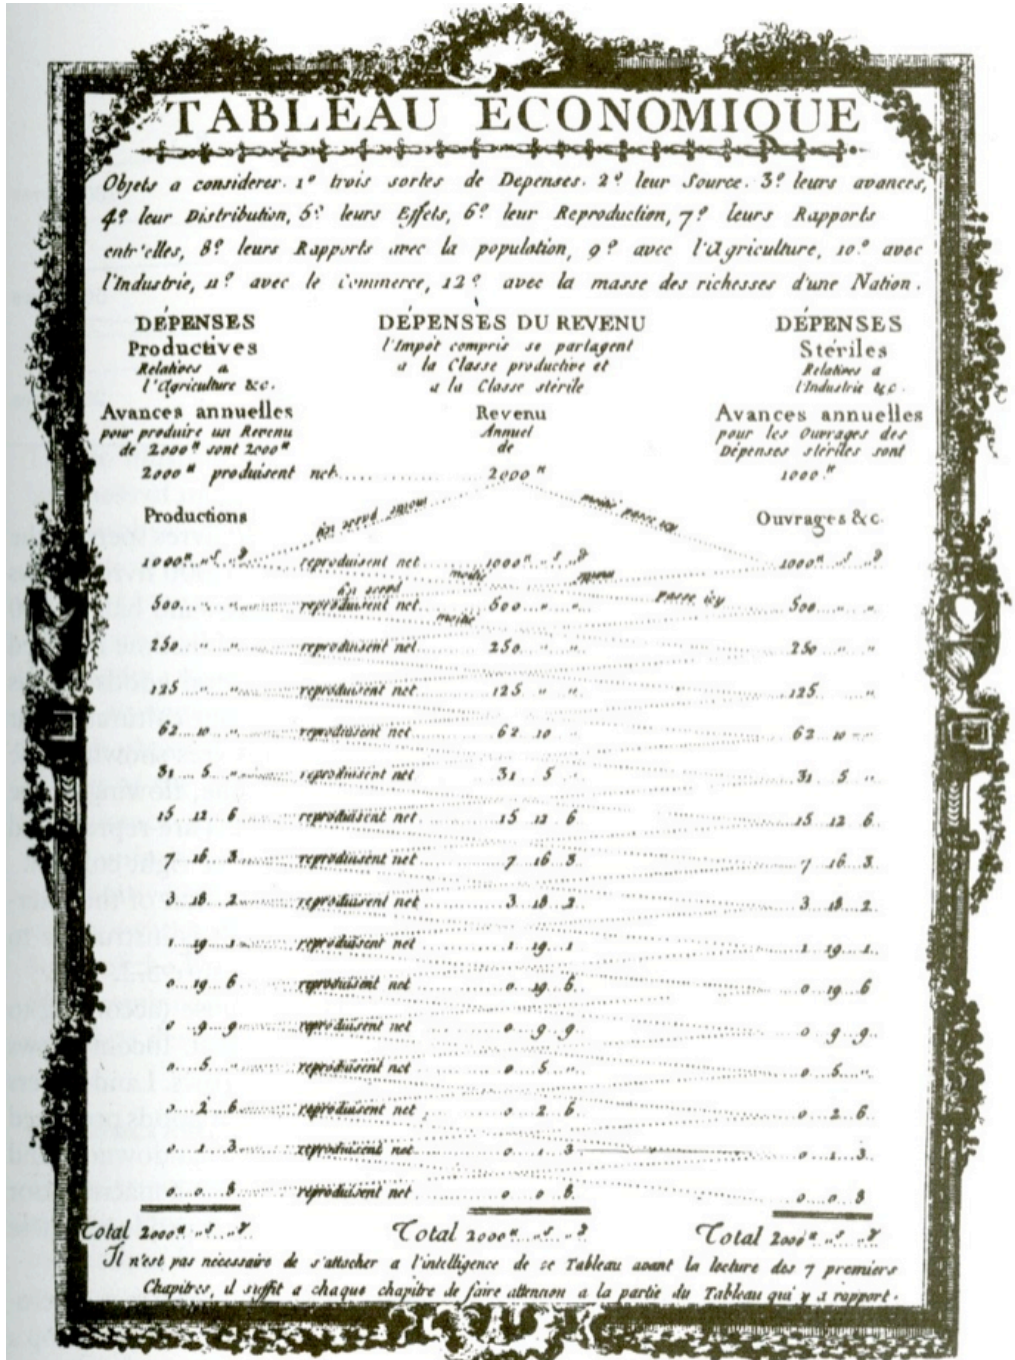 TABLEAU ECONOMIQUE
Objets a considerer. 1º trois sortes de Depenses. 2º leur Source. 3º leurs avances,
4º leur Distribution, 5º leurs Effets, 6º leur Reproduction, 7º leurs Rapports
entr'elles, 8º leurs Rapports avec la population, 9º avec l'Agriculture, 10º avec
l'Industrie, 11º avec le Commerce, 12º avec la masse des richesses d'une Nation.
DÉPENSES
Productives
Relatives a
l'Agriculture &c.
DÉPENSES DU REVENU
l'Impôt compris se partagent
a la Classe productive et
a la Classe stérile
DÉPENSES
Stériles
Relatives a
l'Industrie &c.
Avances annuelles
pour produire un Revenu
de 2000ᵗᵗ sont 2000ᵗᵗ
2000ᵗᵗ produisent net
Revenu
Annuel
de
2000ᵗᵗ
Avances annuelles
pour les Ouvrages des
Dépenses stériles sont
1000ᵗᵗ
moitié passe icy
Productions
Ouvrages &c.
1000ᵗᵗ s d reproduisent net 1000ᵗᵗ s d 1000ᵗᵗ s d
moitié
passe icy
500 " " reproduisent net 500 " " 500 " "
moitié
250 " " reproduisent net 250 " " 250 " "
125 " " reproduisent net 125 " " 125 "
62 10 " reproduisent net 62 10 " 62 10 "
31 5 " reproduisent net 31 5 " 31 5 "
15 12 6 reproduisent net 15 12 6 15 12 6
7 16 3 reproduisent net 7 16 3 7 16 3
3 18 2 reproduisent net 3 18 2 3 18 2
1 19 1 reproduisent net 1 19 1 1 19 1
0 19 6 reproduisent net 0 19 6 0 19 6
0 9 9 reproduisent net 0 9 9 0 9 9
0 5 " reproduisent net 0 5 " 0 5 "
0 2 6 reproduisent net 0 2 6 0 2 6
0 1 3 reproduisent net 0 1 3 0 1 3
0 0 8 reproduisent net 0 0 8 0 0 8
Total 2000ᵗᵗ " s " d Total 2000ᵗᵗ " s " d Total 2000ᵗᵗ " s " d
Il n'est pas nécessaire de s'attacher a l'intelligence de ce Tableau avant la lecture des 7 premiers
Chapitres, il suffit a chaque chapitre de faire attention a la partie du Tableau qui y a rapport.